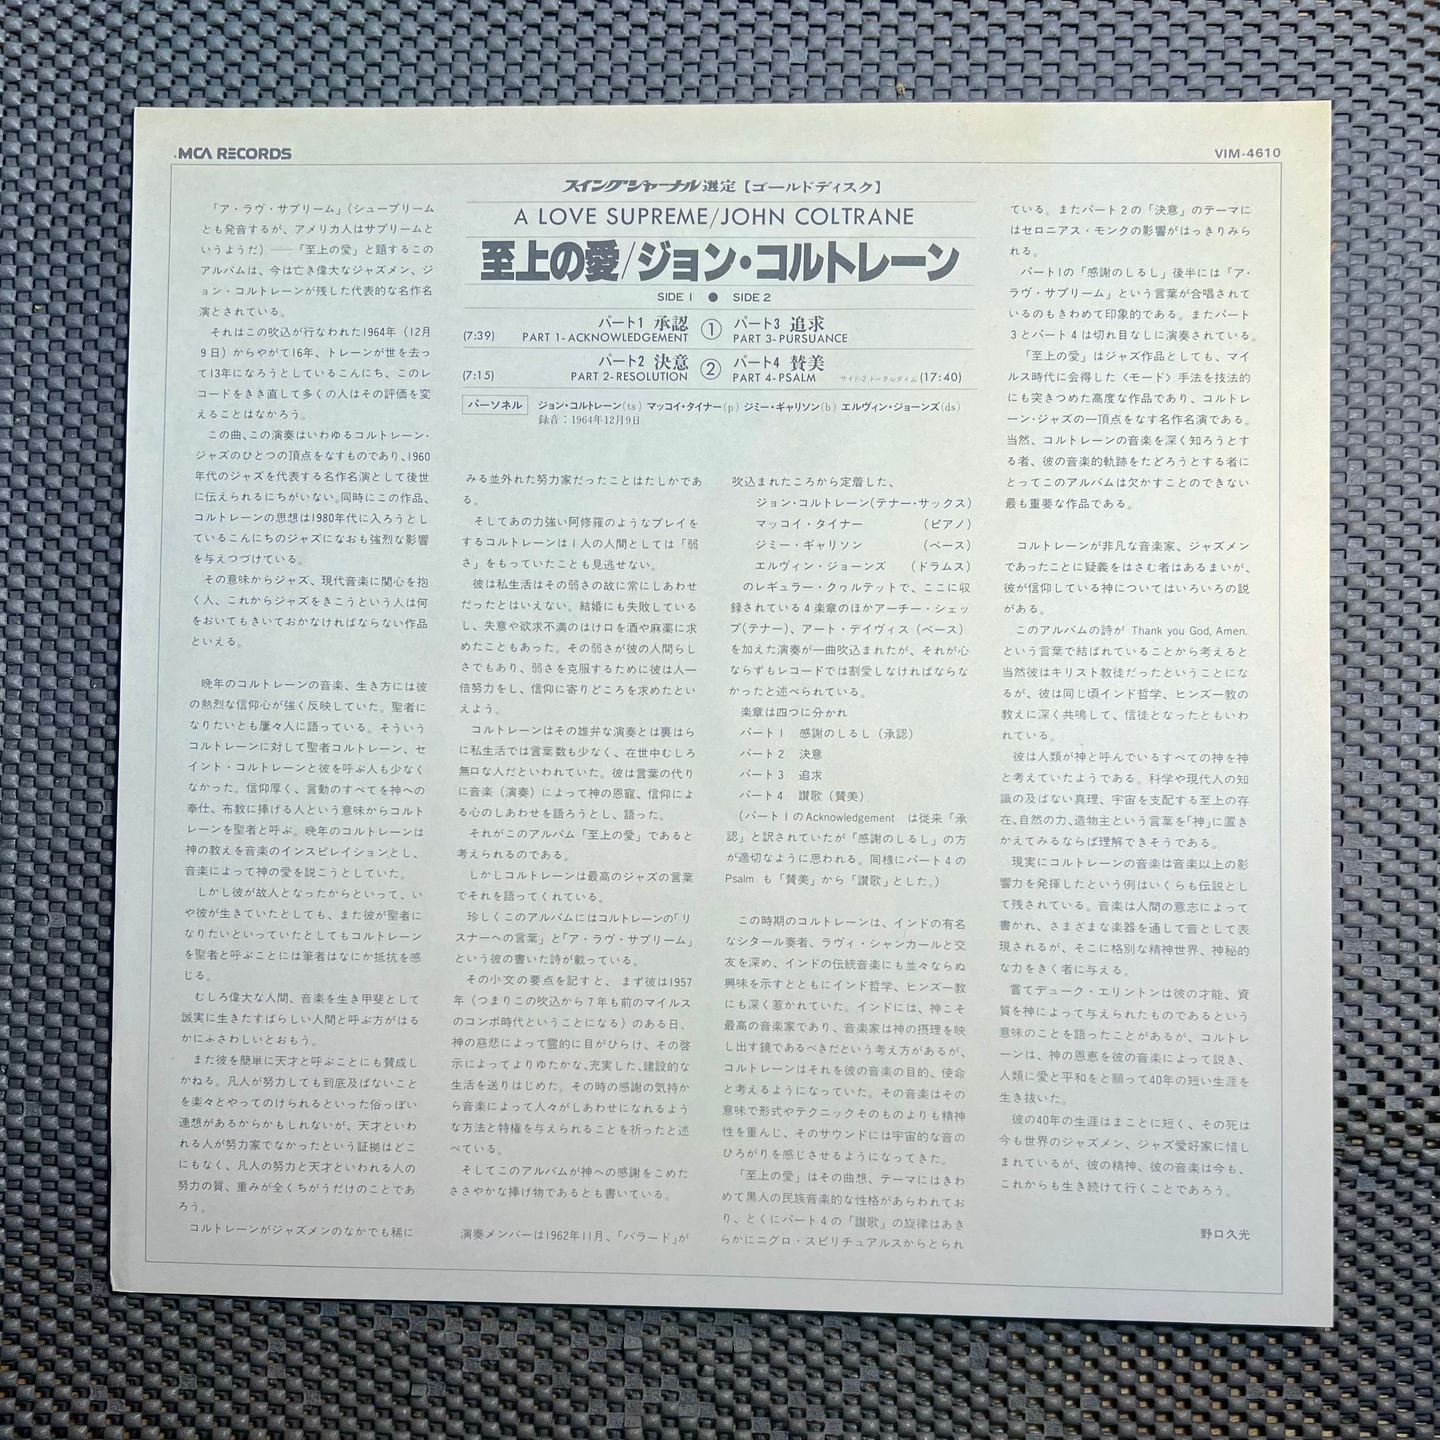 MCA RECORDS
VIM-4610
スイングジャーナル選定【ゴールドディスク】
A LOVE SUPREME/JOHN COLTRANE
至上の愛/ジョン・コルトレーン
SIDE 1 ● SIDE 2
パート1 承認 ① パート3 追求
(7:39) PART 1-ACKNOWLEDGEMENT PART 3-PURSUANCE
パート2 決意 ② パート4 賛美
(7:15) PART 2-RESOLUTION PART 4-PSALM サイド・2 トータルタイム (17:40)
パーソネル ジョン・コルトレーン(ts) マッコイ・タイナー(p) ジミー・ギャリソン(b) エルヴィン・ジョーンズ(ds)
録音：1964年12月9日
「ア・ラヴ・サブリーム」(シューブリーム
とも発音するが、アメリカ人はサブリームと
いうようだ）――「至上の愛」と題するこの
アルバムは、今は亡き偉大なジャズメン、ジ
ョン・コルトレーンが残した代表的な名作名
演とされている。
それはこの吹込が行なわれた1964年（12月
9日）からやがて16年、トレーンが世を去っ
て13年になろうとしているこんにち、このレ
コードをきき直して多くの人はその評価を変
えることはなかろう。
この曲、この演奏はいわゆるコルトレーン・
ジャズのひとつの頂点をなすものであり、1960
年代のジャズを代表する名作名演として後世
に伝えられるにちがいない。同時にこの作品、
コルトレーンの思想は1980年代に入ろうとし
ているこんにちのジャズになおも強烈な影響
を与えつづけている。
その意味からジャズ、現代音楽に関心を抱
く人、これからジャズをきこうという人は何
をおいてもきいておかなければならない作品
といえる。
晩年のコルトレーンの音楽、生き方には彼
の熱烈な信仰心が強く反映していた。聖者に
なりたいとも屢々人に語っている。そういう
コルトレーンに対して聖者コルトレーン、セ
イント・コルトレーンと彼を呼ぶ人も少なく
なかった。信仰厚く、言動のすべてを神への
奉仕、布教に捧げる人という意味からコルト
レーンを聖者と呼ぶ。晩年のコルトレーンは
神の教えを音楽のインスピレイションとし、
音楽によって神の愛を説こうとしていた。
しかし彼が故人となったからといって、い
や彼が生きていたとしても、また彼が聖者に
なりたいといっていたとしてもコルトレーン
を聖者と呼ぶことには筆者はなにか抵抗を感
じる。
むしろ偉大な人間、音楽を生き甲斐として
誠実に生きたすばらしい人間と呼ぶ方がはる
かにふさわしいとおもう。
また彼を簡単に天才と呼ぶことにも賛成し
かねる。凡人が努力しても到底及ばないこと
を楽々とやってのけられるといった俗っぽい
連想があるからかもしれないが、天才といわ
れる人が努力家でなかったという証拠はどこ
にもなく、凡人の努力と天才といわれる人の
努力の質、重みが全くちがうだけのことであ
ろう。
コルトレーンがジャズメンのなかでも稀に
みる並外れた努力家だったことはたしかであ
る。
そしてあの力強い阿修羅のようなプレイを
するコルトレーンは1人の人間としては「弱
さ」をもっていたことも見逃せない。
彼は私生活はその弱さの故に常にしあわせ
だったとはいえない。結婚にも失敗している
し、失意や欲求不満のはけ口を酒や麻薬に求
めたこともあった。その弱さが彼の人間らし
さでもあり、弱さを克服するために彼は人一
倍努力をし、信仰に寄りどころを求めたとい
えよう。
コルトレーンはその雄弁な演奏とは裏はら
に私生活では言葉数も少なく、在世中むしろ
無口な人だといわれていた。彼は言葉の代り
に音楽（演奏）によって神の恩寵、信仰によ
る心のしあわせを語ろうとし、語った。
それがこのアルバム「至上の愛」であると
考えられるのである。
しかしコルトレーンは最高のジャズの言葉
でそれを語ってくれている。
珍しくこのアルバムにはコルトレーンの「リ
スナーへの言葉」と「ア・ラヴ・サブリーム」
という彼の書いた詩が載っている。
その小文の要点を記すと、まず彼は1957
年（つまりこの吹込から7年も前のマイルス
のコンボ時代ということになる）のある日、
神の慈悲によって霊的に目がひらけ、その啓
示によってよりゆたかな、充実した、建設的な
生活を送りはじめた。その時の感謝の気持か
ら音楽によって人々がしあわせになれるよう
な方法と特権を与えられることを祈ったと述
べている。
そしてこのアルバムが神への感謝をこめた
ささやかな捧げ物であるとも書いている。
演奏メンバーは1962年11月、「バラード」が
吹込まれたころから定着した、
ジョン・コルトレーン(テナー・サックス)
マッコイ・タイナー （ピアノ）
ジミー・ギャリソン （ベース）
エルヴィン・ジョーンズ （ドラムス）
のレギュラー・クヮルテットで、ここに収
録されている4楽章のほかアーチー・シェッ
プ(テナー)、アート・デイヴィス（ベース）
を加えた演奏が一曲吹込まれたが、それが心
ならずもレコードでは割愛しなければならな
かったと述べられている。
楽章は四つに分かれ
パート1 感謝のしるし（承認）
パート2 決意
パート3 追求
パート4 讃歌（賛美）
（パート1のAcknowledgement は従来「承
認」と訳されていたが「感謝のしるし」の方
が適切なように思われる。同様にパート4の
Psalm も「賛美」から「讃歌」とした。）
この時期のコルトレーンは、インドの有名
なシタール奏者、ラヴィ・シャンカールと交
友を深め、インドの伝統音楽にも並々ならぬ
興味を示すとともにインド哲学、ヒンズー教
にも深く惹かれていた。インドには、神こそ
最高の音楽家であり、音楽家は神の摂理を映
し出す鏡であるべきだという考え方があるが、
コルトレーンはそれを彼の音楽の目的、使命
と考えるようになっていた。その音楽はその
意味で形式やテクニックそのものよりも精神
性を重んじ、そのサウンドには宇宙的な音の
ひろがりを感じさせるようになってきた。
「至上の愛」はその曲想、テーマにはきわ
めて黒人の民族音楽的な性格があらわれてお
り、とくにパート4の「讃歌」の旋律はあき
らかにニグロ・スピリチュアルスからとられ
ている。またパート2の「決意」のテーマに
はセロニアス・モンクの影響がはっきりみら
れる。
パート1の「感謝のしるし」後半には「ア・
ラヴ・サブリーム」という言葉が合唱されて
いるのもきわめて印象的である。またパート
3とパート4は切れ目なしに演奏されている。
「至上の愛」はジャズ作品としても、マイ
ルス時代に会得した〈モード〉手法を技法的
にも突きつめた高度な作品であり、コルトレ
ーン・ジャズの一頂点をなす名作名演である。
当然、コルトレーンの音楽を深く知ろうとす
る者、彼の音楽的軌跡をたどろうとする者に
とってこのアルバムは欠かすことのできない
最も重要な作品である。
コルトレーンが非凡な音楽家、ジャズメン
であったことに疑義をはさむ者はあるまいが、
彼が信仰している神についてはいろいろの説
がある。
このアルバムの詩が Thank you God, Amen.
という言葉で結ばれていることから考えると
当然彼はキリスト教徒だったということにな
るが、彼は同じ頃インド哲学、ヒンズー教の
教えに深く共鳴して、信徒となったともいわ
れている。
彼は人類が神と呼んでいるすべての神を神
と考えていたようである。科学や現代人の知
識の及ばない真理、宇宙を支配する至上の存
在、自然の力、造物主という言葉を「神」に置き
かえてみるならば理解できそうである。
現実にコルトレーンの音楽は音楽以上の影
響力を発揮したという例はいくらも伝説とし
て残されている。音楽は人間の意志によって
書かれ、さまざまな楽器を通して音として表
現されるが、そこに格別な精神世界、神秘的
な力をきく者に与える。
嘗てデューク・エリントンは彼の才能、資
質を神によって与えられたものであるという
意味のことを語ったことがあるが、コルトレ
ーンは、神の恩恵を彼の音楽によって説き、
人類に愛と平和をと願って40年の短い生涯を
生き抜いた。
彼の40年の生涯はまことに短く、その死は
今も世界のジャズメン、ジャズ愛好家に惜し
まれているが、彼の精神、彼の音楽は今も、
これからも生き続けて行くことであろう。
野口久光